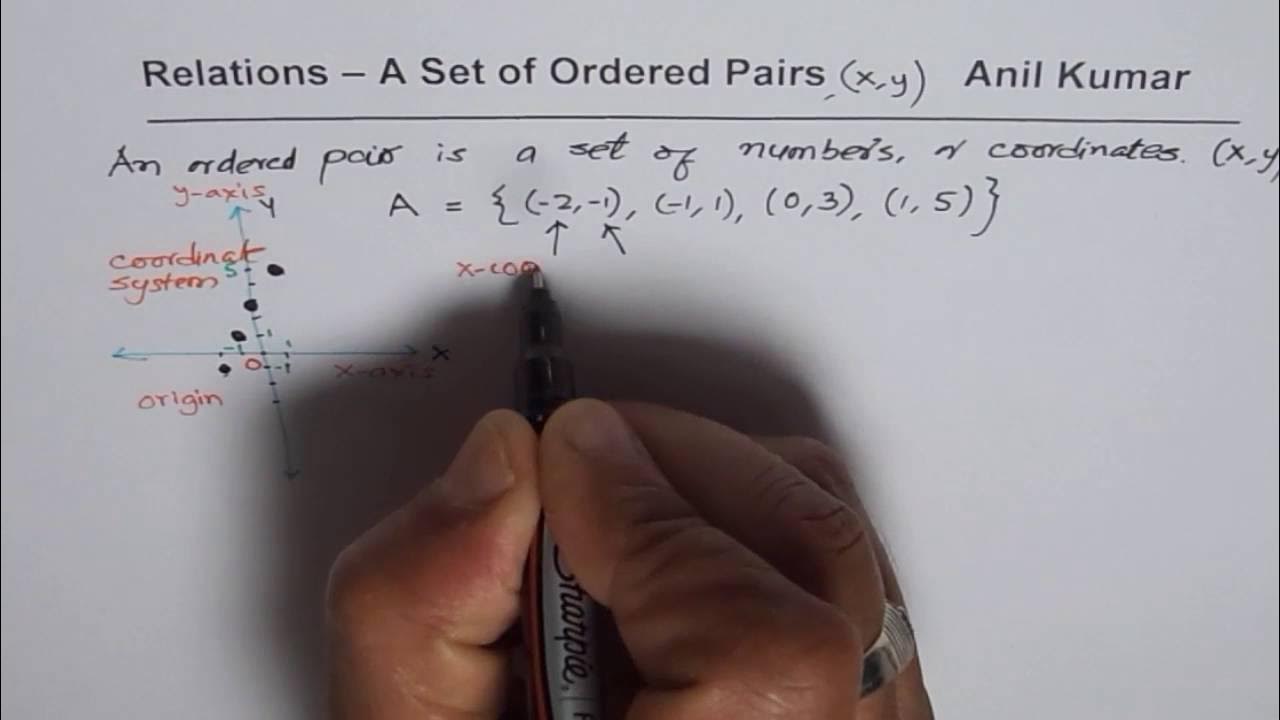 Relations – A Set of Ordered Pairs (x,y) Anil Kumar
An ordered pair is a set of numbers, or coordinates. (x,y
A = {(-2,-1), (-1,1), (0,3), (1,5)}
y-axis
Y
coordinate
system
5
x-coo
1
-1
1
0
-1
X
x-axis
origin
Sharpie.